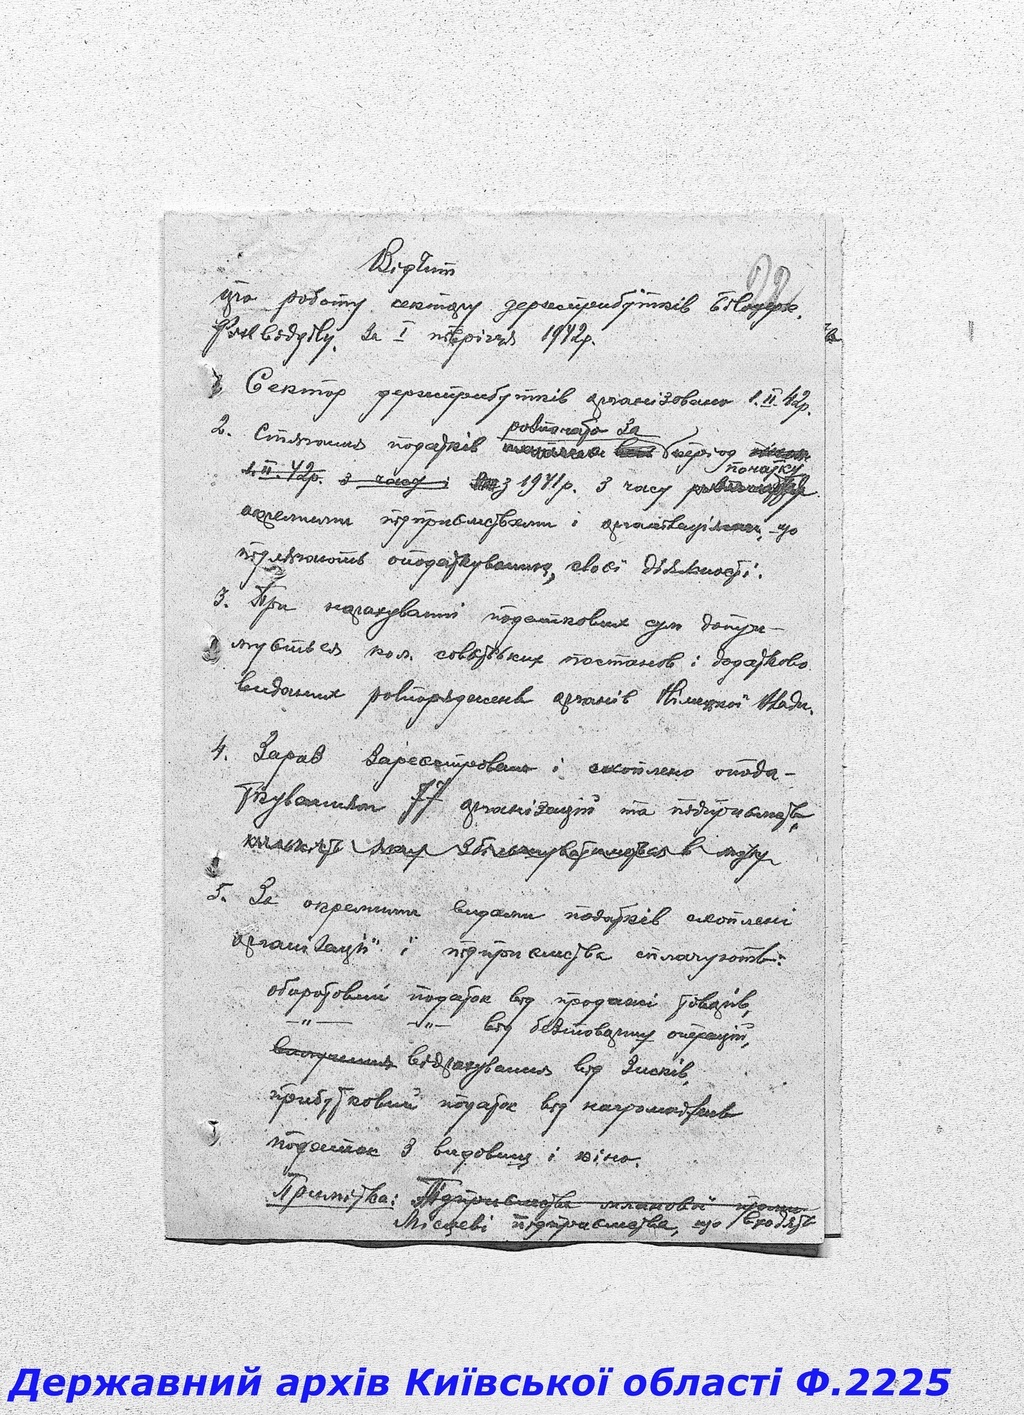 Відчит
про роботу сектору держприбутків
за І півріччя 1942р.
1. Сектор держприбутків організовано 1.ІІ.42р.
розпочато за
2. Стягнення податків період
початку
1.ІІ.42р. з часу і з 1941р. З часу
окремими підприємствами і що
підлягають оподаткуванню, своєї діяльності.
3. При нарахуванні податкових сум дотри-
мується кол. совітських постанов і додатково
виданих розпоряджень органів Німецької Влади.
4. Зараз зареєстровано і охоплено опода-
ткуванням 77 організацій та підприємств,
кількість яких збільшуватиметься в
5. За окремими видами податків охоплені
організації і підприємства сплачують:
оборотовий податок від продажі товарів,
—"— —"— від безтоварних операцій,
відрахування від зисків,
прибутковий податок від нагромаджень
податок з видовищ і кіно.
Примітка: Підприємства
Місцеві підприємства, що входять
Державний архів Київської області Ф.2225